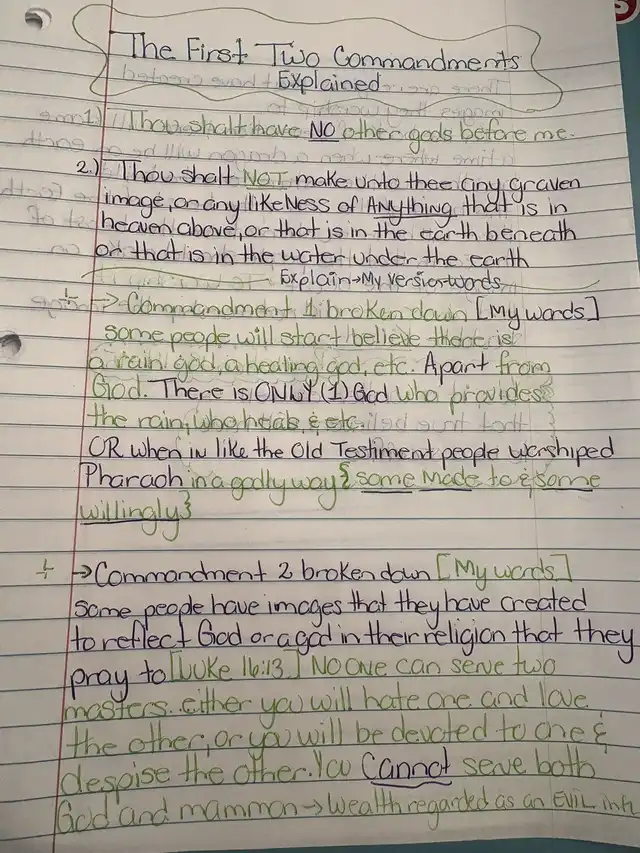 The First Two Commandments
Explained
1) Thou shalt have NO other gods before me.
2.) Thou shalt NOT make unto thee any graven
image, or any likeNess of ANything that is in
heaven above, or that is in the earth beneath
or that is in the water under the earth
Explain→My version-words
→ Commandment 1 broken down [My words]
some people will start believe there is
a rain god, a healing god, etc. Apart from
God. There is ONLY (1) God who provides
the rain, who heals, & etc.
OR when in like the Old Testiment people worshiped
Pharaoh in a godly way {some Made to & some
willingly}
→ Commandment 2 broken down [My words]
Some people have images that they have created
to reflect God or a god in their religion that they
pray to [Luke 16:13] No one can serve two
masters. either you will hate one and love
the other, or you will be devoted to one &
despise the other. You Cannot serve both
God and mammon → Wealth regarded as an EVIL infl